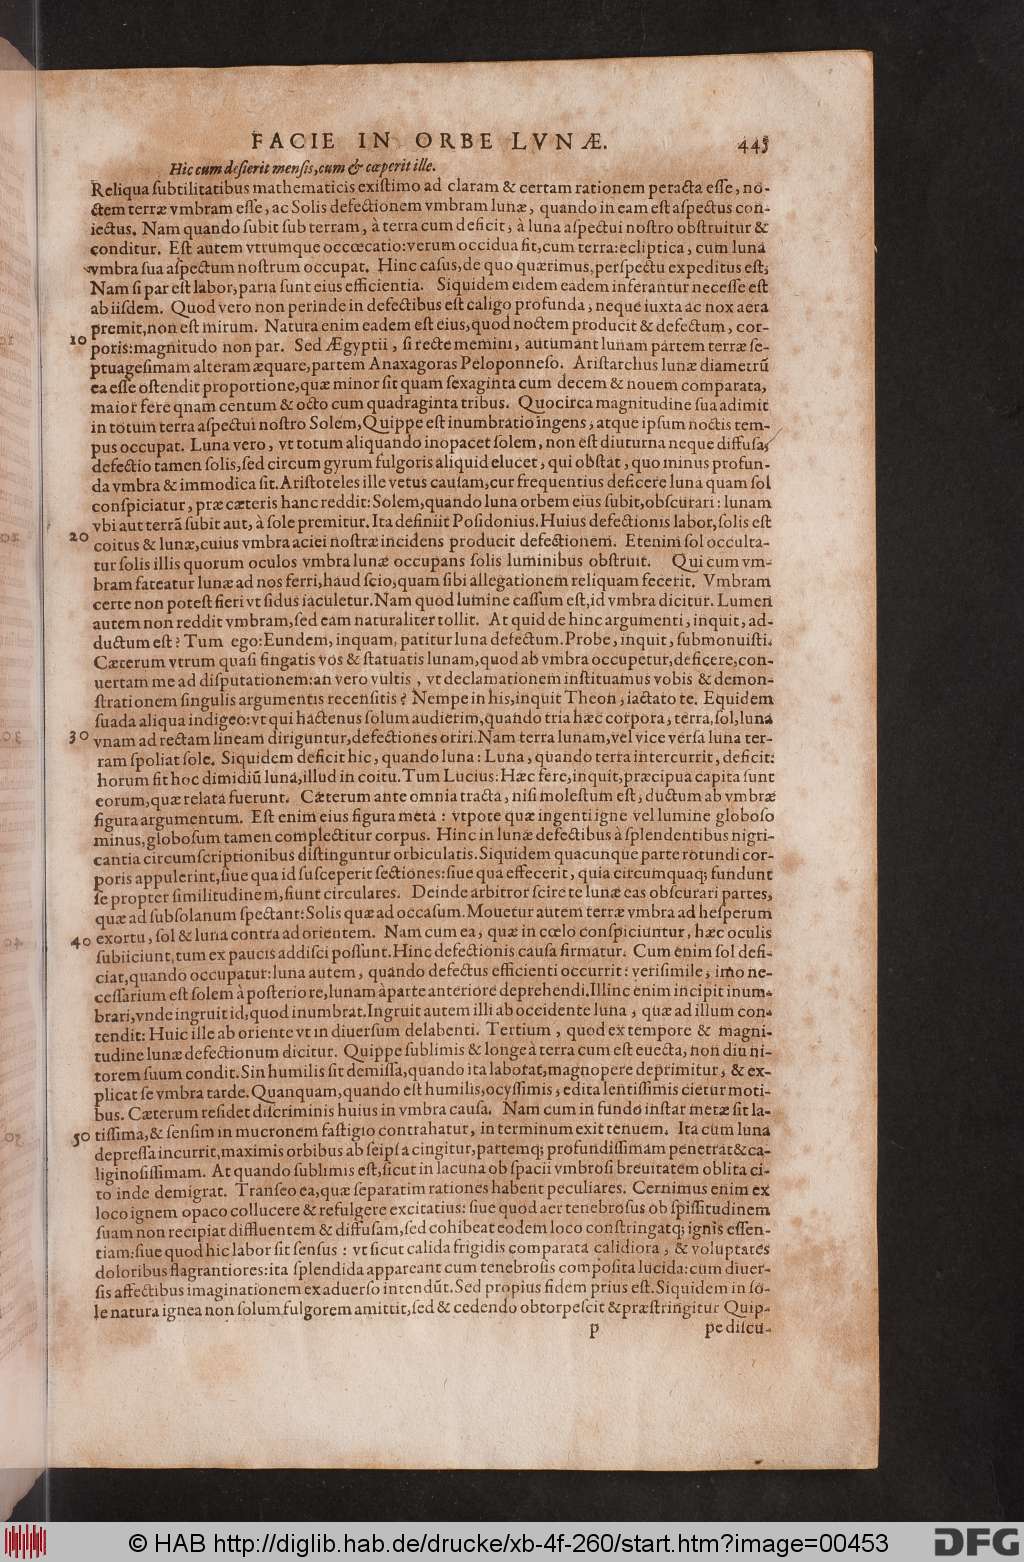 FACIE IN ORBE LVNÆ. 445
Hic cum desierit mensis, cum & cœperit ille.
Reliqua ſubtilitatibus mathematicis exiſtimo ad claram & certam rationem peracta eſſe, no-
ctem terræ vmbram eſſe, ac Solis defectionem vmbram lunæ, quando in eam eſt aſpectus con-
iectus. Nam quando ſubit ſub terram, à terra cum deficit, à luna aſpectui noſtro obſtruitur &
conditur. Eſt autem vtrumque occœcatio: verum occidua fit, cum terra: ecliptica, cum luna
vmbra ſua aſpectum noſtrum occupat. Hinc caſus, de quo quærimus, perſpectu expeditus eſt;
Nam ſi par eſt labor, paria ſunt eius efficientia. Siquidem eidem eadem inferantur neceſſe eſt
ab iiſdem. Quod vero non perinde in defectibus eſt caligo profunda, neque iuxta ac nox aera
premit, non eſt mirum. Natura enim eadem eſt eius, quod noctem producit & defectum, cor-
10 poris: magnitudo non par. Sed Ægyptii, ſi recte memini, autumant lunam partem terræ ſe-
ptuageſimam alteram æquare, partem Anaxagoras Peloponneſo. Ariſtarchus lunæ diametrū
ea eſſe oſtendit proportione, quæ minor ſit quam ſexaginta cum decem & nouem comparata,
maior fere qnam centum & octo cum quadraginta tribus. Quocirca magnitudine ſua adimit
in totum terra aſpectui noſtro Solem, Quippe eſt inumbratio ingens, atque ipſum noctis tem-
pus occupat. Luna vero, vt totum aliquando inopacet ſolem, non eſt diuturna neque diffuſa,
defectio tamen ſolis, ſed circum gyrum fulgoris aliquid elucet, qui obſtat, quo minus profun-
da vmbra & immodica ſit. Ariſtoteles ille vetus cauſam, cur frequentius deficere luna quam ſol
conſpiciatur, præ cæteris hanc reddit: Solem, quando luna orbem eius ſubit, obſcurari: lunam
vbi aut terrā ſubit aut, à ſole premitur. Ita definiit Poſidonius. Huius defectionis labor, ſolis eſt
20 coitus & lunæ, cuius vmbra aciei noſtræ incidens producit defectionem. Etenim ſol occulta-
tur ſolis illis quorum oculos vmbra lunæ occupans ſolis luminibus obſtruit. Qui cum vm-
bram fateatur lunæ ad nos ferri, haud ſcio, quam ſibi allegationem reliquam fecerit. Vmbram
certe non poteſt fieri vt ſidus iaculetur. Nam quod lumine caſſum eſt, id vmbra dicitur. Lumen
autem non reddit vmbram, ſed eam naturaliter tollit. At quid de hinc argumenti, inquit, ad-
ductum eſt? Tum ego: Eundem, inquam, patitur luna defectum. Probe, inquit, ſubmonuiſti.
Cæterum vtrum quaſi fingatis vos & ſtatuatis lunam, quod ab vmbra occupetur, deficere, con-
uertam me ad diſputationem: an vero vultis, vt declamationem inſtituamus vobis & demon-
ſtrationem ſingulis argumentis recenſitis? Nempe in his, inquit Theon, iactato te. Equidem
ſuada aliqua indigeo: vt qui hactenus ſolum audierim, quando tria hæc corpora, terra, ſol, luna
30 vnam ad rectam lineam diriguntur, defectiones oriri. Nam terra lunam, vel vice verſa luna ter-
ram ſpoliat ſole. Siquidem deficit hic, quando luna: Luna, quando terra intercurrit, deficit:
horum fit hoc dimidiū luna, illud in coitu. Tum Lucius: Hæc fere, inquit, præcipua capita ſunt
eorum, quæ relata fuerunt. Cæterum ante omnia tracta, niſi moleſtum eſt, ductum ab vmbræ
figura argumentum. Eſt enim eius figura meta: vtpote quæ ingenti igne vel lumine globoſo
minus, globoſum tamen complectitur corpus. Hinc in lunæ defectibus à ſplendentibus nigri-
cantia circumſcriptionibus diſtinguntur orbiculatis. Siquidem quacunque parte rotundi cor-
poris appulerint, ſiue qua id ſuſceperit ſectiones: ſiue qua effecerit, quia circumquaq; fundunt
ſe propter ſimilitudinem, fiunt circulares. Deinde arbitror ſcire te lunæ eas obſcurari partes,
quæ ad ſubſolanum ſpectant: Solis quæ ad occaſum. Mouetur autem terræ vmbra ad heſperum
40 exortu, ſol & luna contra ad orientem. Nam cum ea, quæ in cœlo conſpiciuntur, hæc oculis
ſubiiciunt, tum ex paucis addiſci poſſunt. Hinc defectionis cauſa firmatur. Cum enim ſol defi-
ciat, quando occupatur: luna autem, quando defectus efficienti occurrit: veriſimile, imo ne-
ceſſarium eſt ſolem à poſteriore, lunam à parte anteriore deprehendi. Illinc enim incipit inum-
brari, vnde ingruit id, quod inumbrat. Ingruit autem illi ab occidente luna, quæ ad illum con-
tendit: Huic ille ab oriente vt in diuerſum delabenti. Tertium, quod ex tempore & magni-
tudine lunæ defectionum dicitur. Quippe ſublimis & longe à terra cum eſt euecta, non diu ni-
torem ſuum condit. Sin humilis ſit demiſſa, quando ita laborat, magnopere deprimitur, & ex-
plicat ſe vmbra tarde. Quanquam, quando eſt humilis, ocyſſimis, edita lentiſſimis cietur moti-
bus. Cæterum reſidet diſcriminis huius in vmbra cauſa. Nam cum in fundo inſtar metæ ſit la-
50 tiſſima, & ſenſim in mucronem faſtigio contrahatur, in terminum exit tenuem. Ita cum luna
depreſſa incurrit, maximis orbibus ab ſeipſa cingitur, partemq; profundiſſimam penetrat & ca-
liginoſiſſimam. At quando ſublimis eſt, ſicut in lacuna ob ſpacii vmbroſi breuitatem oblita ci-
to inde demigrat. Tranſeo ea, quæ ſeparatim rationes habent peculiares. Cernimus enim ex
loco ignem opaco collucere & refulgere excitatius: ſiue quod aer tenebroſus ob ſpiſſitudinem
ſuam non recipiat diffluentem & diffuſam, ſed cohibeat eodem loco conſtringatq; ignis eſſen-
tiam: ſiue quod hic labor ſit ſenſus: vt ſicut calida frigidis comparata calidiora, & voluptates
doloribus flagrantiores: ita ſplendida appareant cum tenebroſis compoſita lucida: cum diuer-
ſis affectibus imaginationem ex aduerſo intendūt. Sed propius fidem prius eſt. Siquidem in ſo-
le natura ignea non ſolum fulgorem amittit, ſed & cedendo obtorpeſcit & præſtringitur Quip-
p pe diſcu-
© HAB http://diglib.hab.de/drucke/xb-4f-260/start.htm?image=00453
DFG